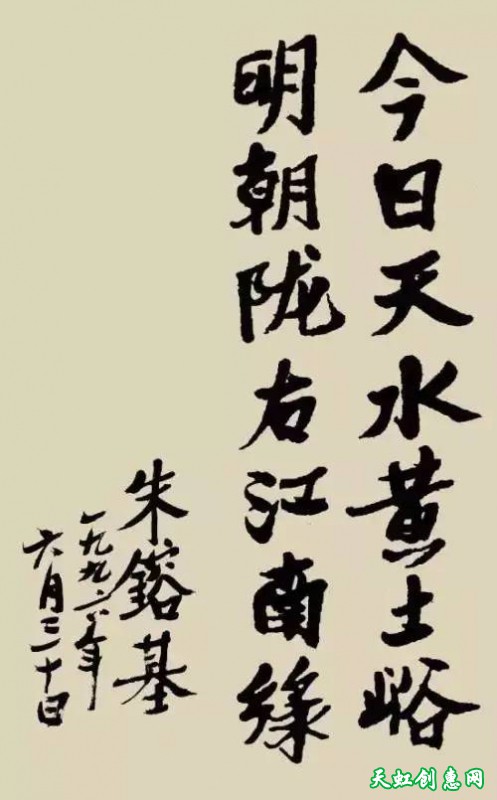 今日天水黄土峪
明朝陇右江南缘
朱镕基
一九九六年
六月三十日
天虹创惠网